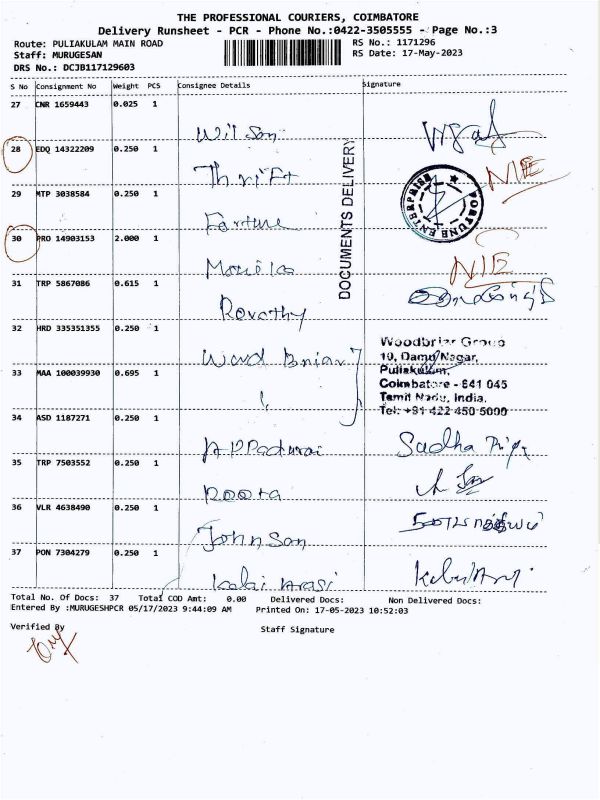 THE PROFESSIONAL COURIERS, COIMBATORE
Delivery Runsheet - PCR - Phone No.:0422-3505555 - Page No.:3
Route: PULIAKULAM MAIN ROAD
RS No.: 1171296
Staff: MURUGESAN
RS Date: 17-May-2023
DRS No.: DCJB117129603
S No Consignment No Weight PCS Consignee Details Signature
27 CNR 1659443 0.025 1
Wilson
28 EDQ 14322209 0.250 1
Thrift NIE
29 MTP 3038584 0.250 1
Fortune
FORTUNE ENTERPRISE
DOCUMENTS DELIVERY
30 PRO 14903153 2.000 1
NIE
31 TRP 5867086 0.615 1
Revathy
32 HRD 335351355 0.250 1
Woodbriar Group
10, Damu Nagar,
33 MAA 100039930 0.695 1
Puliakulam,
Coimbatore - 641 045
Tamil Nadu, India.
Tel: +91 422 450 5000
34 ASD 1187271 0.250 1
35 TRP 7503552 0.250 1
36 VLR 4638490 0.250 1
Johnson
37 PON 7304279 0.250 1
Kalai Arasi
Total No. Of Docs: 37 Total COD Amt: 0.00 Delivered Docs: Non Delivered Docs:
Entered By :MURUGESHPCR 05/17/2023 9:44:09 AM Printed On: 17-05-2023 10:52:03
Verified By
Staff Signature